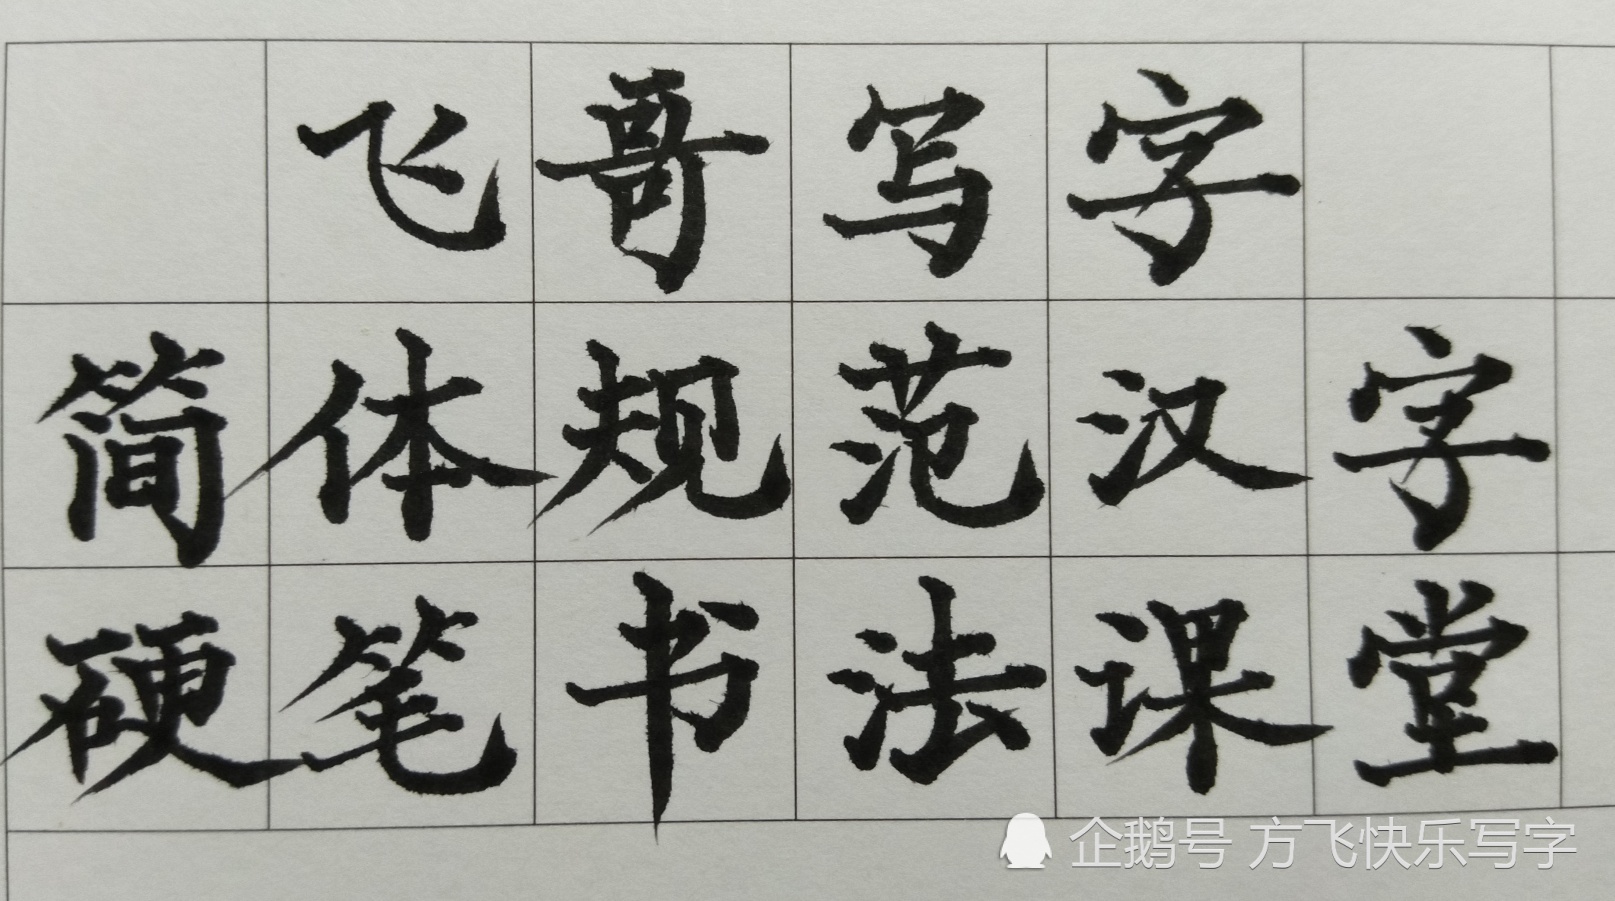 飞哥写字
简体规范汉字
硬笔书法课堂
企鹅号 方飞快乐写字